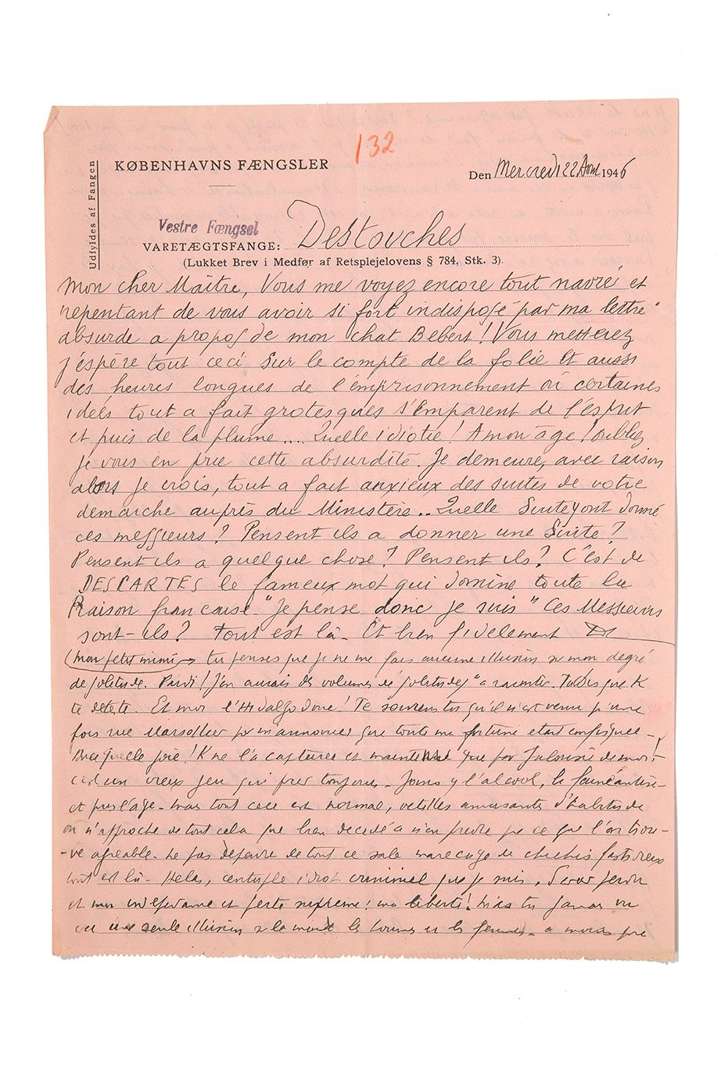 132
KØBENHAVNS FÆNGSLER
Den Mercredi 22 1946
Udfyldes af Fangen
Vestre Fængsel
VARETÆGTSFANGE: Destouches
(Lukket Brev i Medfør af Retsplejelovens § 784, Stk. 3).
Mon cher Maître, Vous me voyez encore tout navré et
repentant de vous avoir si fort indisposé par ma lettre
absurde a propos de mon chat Bebert! Vous mettrez
j'espère tout ceci sur le compte de la folie et aussi
des heures longues de l'emprisonnement où certaines
idées tout a fait grotesques s'emparent de l'esprit
et puis de la plume.... Quelle idiotie! A mon âge! Oubliez
je vous en prie cette absurdité. Je demeure, avec raison
alors je crois, tout a fait anxieux des suites de votre
demarche aupres du Ministère.. Quelle suite y ont donné
ces messieurs? Pensent ils a donner une suite?
Pensent ils a quelque chose? Pensent ils? C'est de
DESCARTES le fameux mot qui domine toute la
Raison francaise "Je pense donc je suis" Ces Messieurs
sont-ils? Tout est là. Et bien fidelement
mon petit mimi tu penses que je ne me fais aucune illusion mon degré
de solitude. Pardi! J'en aurais des volumes de "solitudes" a raconter. que K
te deteste. Et mor l'Hidalgo donc! Te souviens tu qu'il n'est venu qu'une
fois rue Marsollier pour m'annoncer que toute ma fortune etait confisquée.
Avec quelle joie! K ne l'a capturée et que par jalousie de moi!
c'est un vieux jeu qui prend toujours. Joins y l'alcool, la faineantise
et puis l'age. mais tout ceci est normal, vetilles amusantes d'habitude
on n'approche de tout cela que bien decidé a n'en prendre que ce que l'on trou-
-ve agreable. Ne pas dependre de tout ce sale marecage de
tout est là. Helas, idiot criminel que je suis. perdu
et mon independance et perte supreme! ma liberté! mais tu jamais vu
une seule illusion sur le monde les hommes et les femmes. a moins que